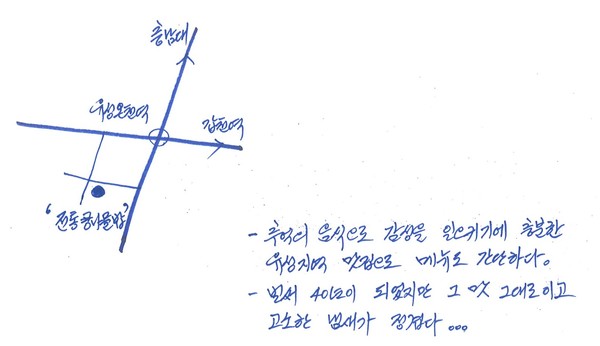 충남대
유성온천역
갑천역
'전통콩나물밥'
- 추억의 음식으로 감성을 일으키기에 충분한
유성지역 맛집으로 메뉴도 간단하다.
- 벌써 40년이 되었지만 그 맛 그대로이고
고소한 냄새가 정겹다...